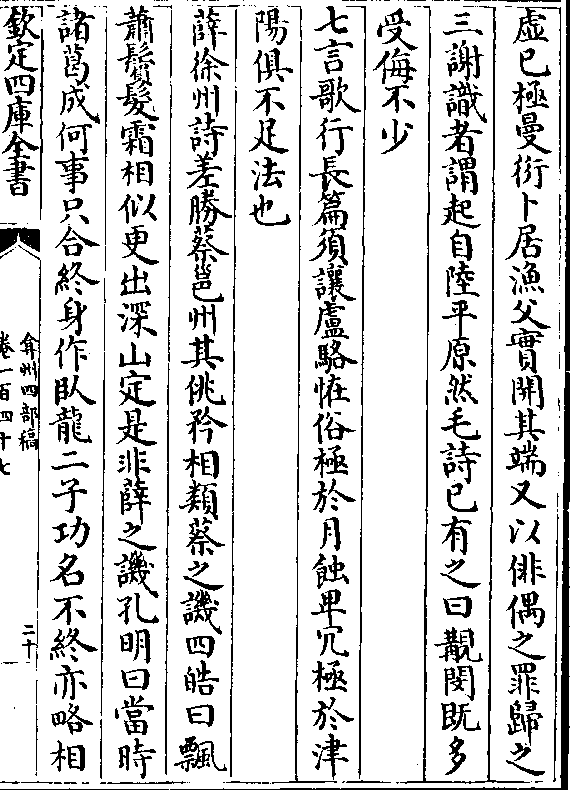 虚已極曼衍卜居漁父實開其端又以俳偶之罪歸之
三謝識者謂起自陸平原然毛詩已有之曰覯閔既多
受侮不少
七言歌行長篇須讓盧駱怪俗極於月蝕卑冗極於津
陽俱不足法也
薛徐州詩差勝蔡邕州其佻矜相類蔡之譏四皓曰飄
蕭鬢髮霜相似更出深山定是非薛之譏孔明曰當時
諸葛成何事只合終身作臥龍二子功名不終亦略相
欽定四庫全書
弇州四部稿
卷一百四十七
二十